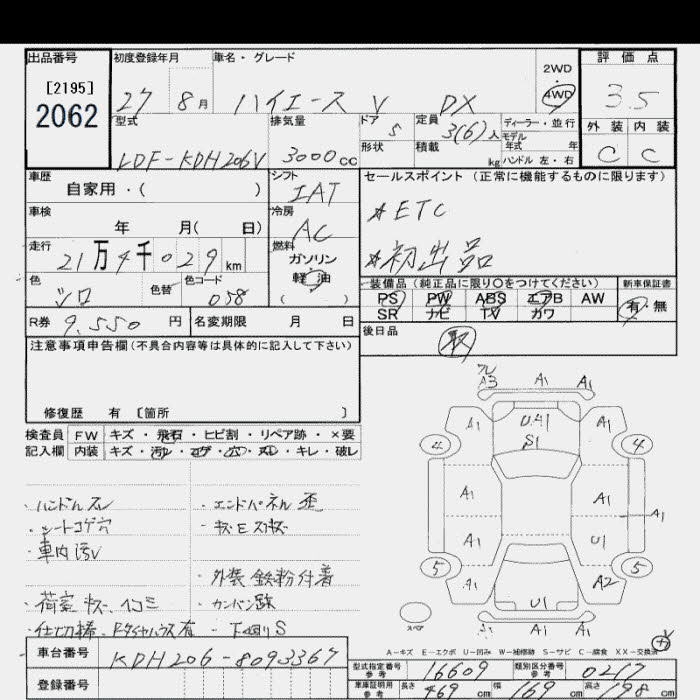 出品番号 初度登録年月 車名・グレード 2WD 評価点
[2195]
2062
27 8月 ハイエース V DX 4WD 3.5
型式 排気量 ドア 定員 ディーラー・並行 外装 内装
5 3(6)人 モデル年式 年
LDF-KDH206V 3000cc 形状 積載 kg ハンドル 左・右 C C
車歴 シフト セールスポイント(正常に機能するものに限ります)
自家用・( ) IAT
車検 冷房 ☆ETC
年 月( 日) AC
走行 燃料 ☆初出品
21万4千029km ガソリン
色 色替 色コード 軽油 装備品(純正品に限り○をつけてください) 新車保証書
シロ 058 ( ) PS PW ABS エアB AW 有・無
SR ナビ TV カワ
R券 9.550円 名変期限 月 日 後日品
取
注意事項申告欄(不具合内容等は具体的に記入して下さい)
修復歴 有 〔箇所 〕
検査員 FW キズ・飛石・ヒビ割・リペア跡・×要
記入欄 内装 キズ・汚レ・コゲ・穴・スレ・キレ・破レ
・ハンドルスレ ・エンドパネル歪
・シートコゲ穴
・車内汚レ
・外装鉄粉付着
・荷室キズ、ヘコミ
・下回りS
A3 A1 A1
A1 U.A1 A1
S1
4 4
A1 A1 A1
A1 U1
5 5
A1 A2
U1
スペア A1 A1 A1
A-キズ E-エクボ U-凹み W-補修跡 S-サビ C-腐食 XX-交換済
車台番号 KDH206-8093367
登録番号
型式指定番号 参考 16609 類別区分番号 参考 0217
車庫証明用 参考 長さ 469cm 幅 169cm 高さ 198cm